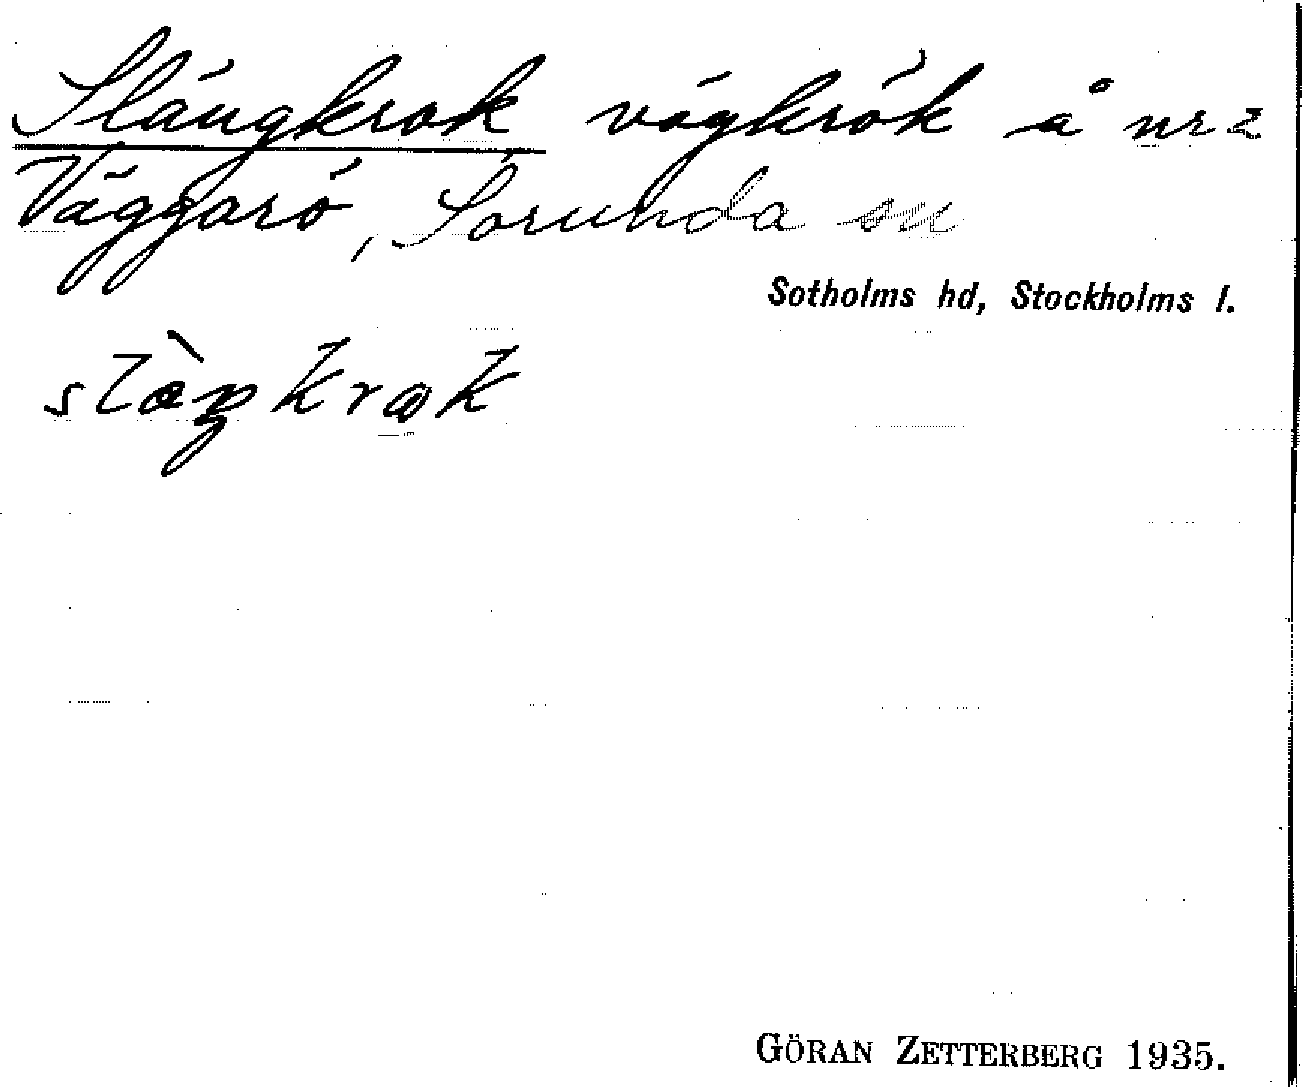 Slängkrok vägkrök å nr 2
Väggarö, Sorunda sn
Sotholms hd, Stockholms l.
slæ̀ŋkrωk
GÖRAN ZETTERBERG 1935.